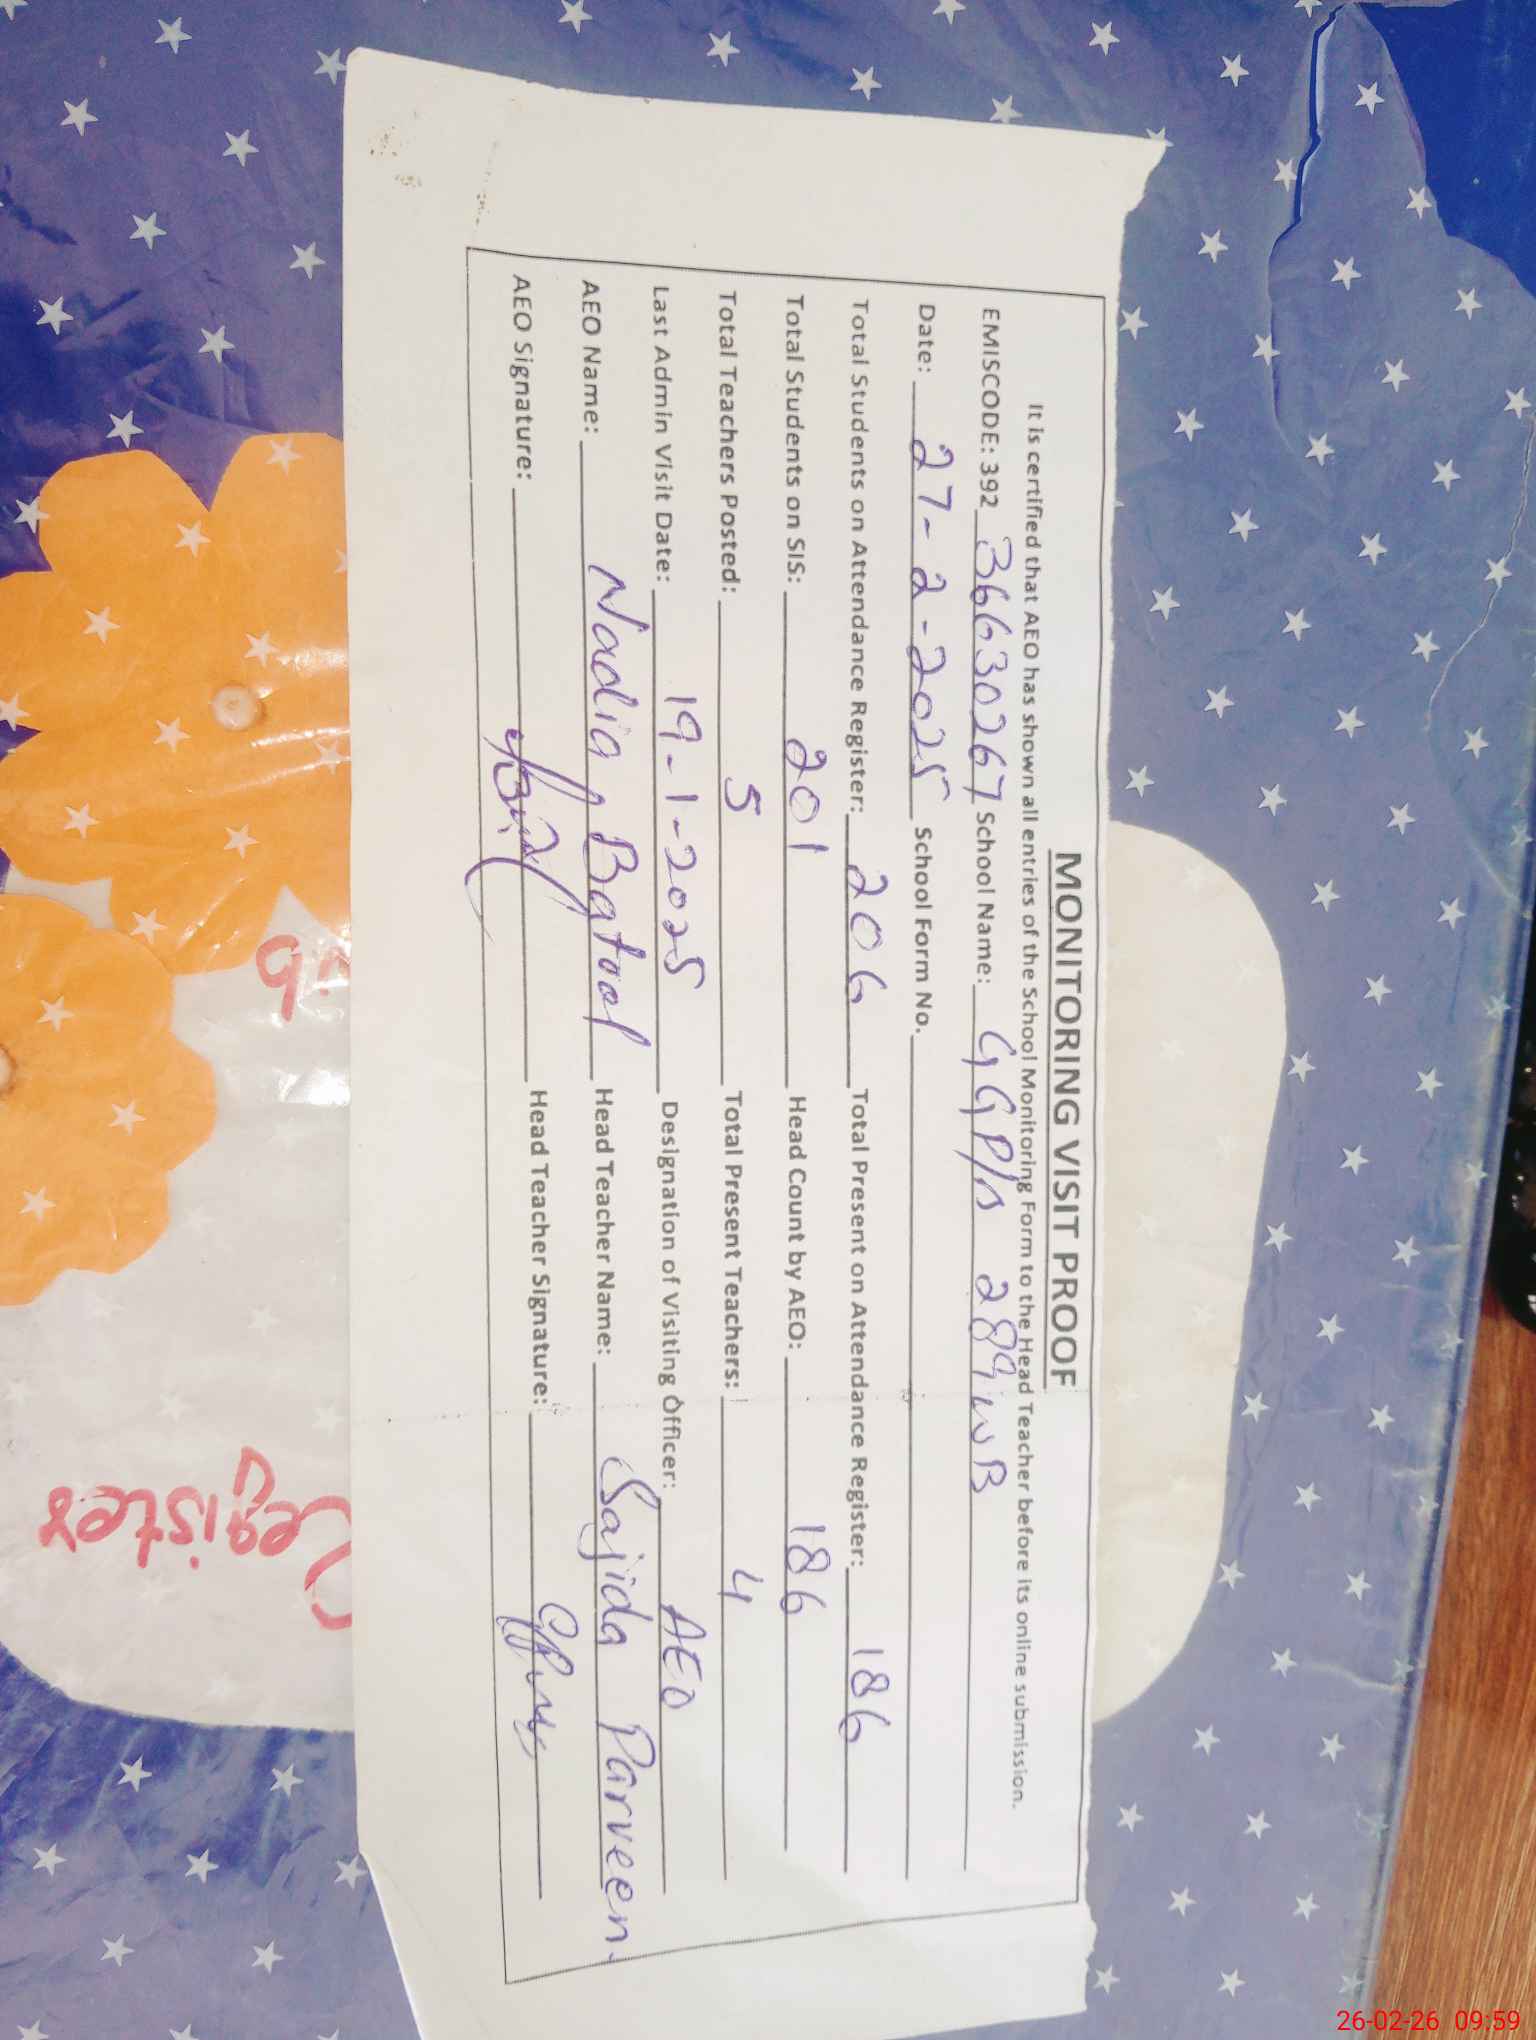 MONITORING VISIT PROOF
It is certified that AEO has shown all entries of the School Monitoring Form to the Head Teacher before its online submission.
EMISCODE: 392 36630267 School Name: GGP/S 289 WB
Date: 27-2-2025 School Form No.
Total Students on Attendance Register: 206 Total Present on Attendance Register: 186
Total Students on SIS: 201 Head Count by AEO: 186
Total Teachers Posted: 5 Total Present Teachers: 4
Last Admin Visit Date: 19-1-2025 Designation of Visiting Officer: AEO
AEO Name: Nadia Batool Head Teacher Name: Sajida Parveen
AEO Signature: Head Teacher Signature:
Register
26-02-26 09:59